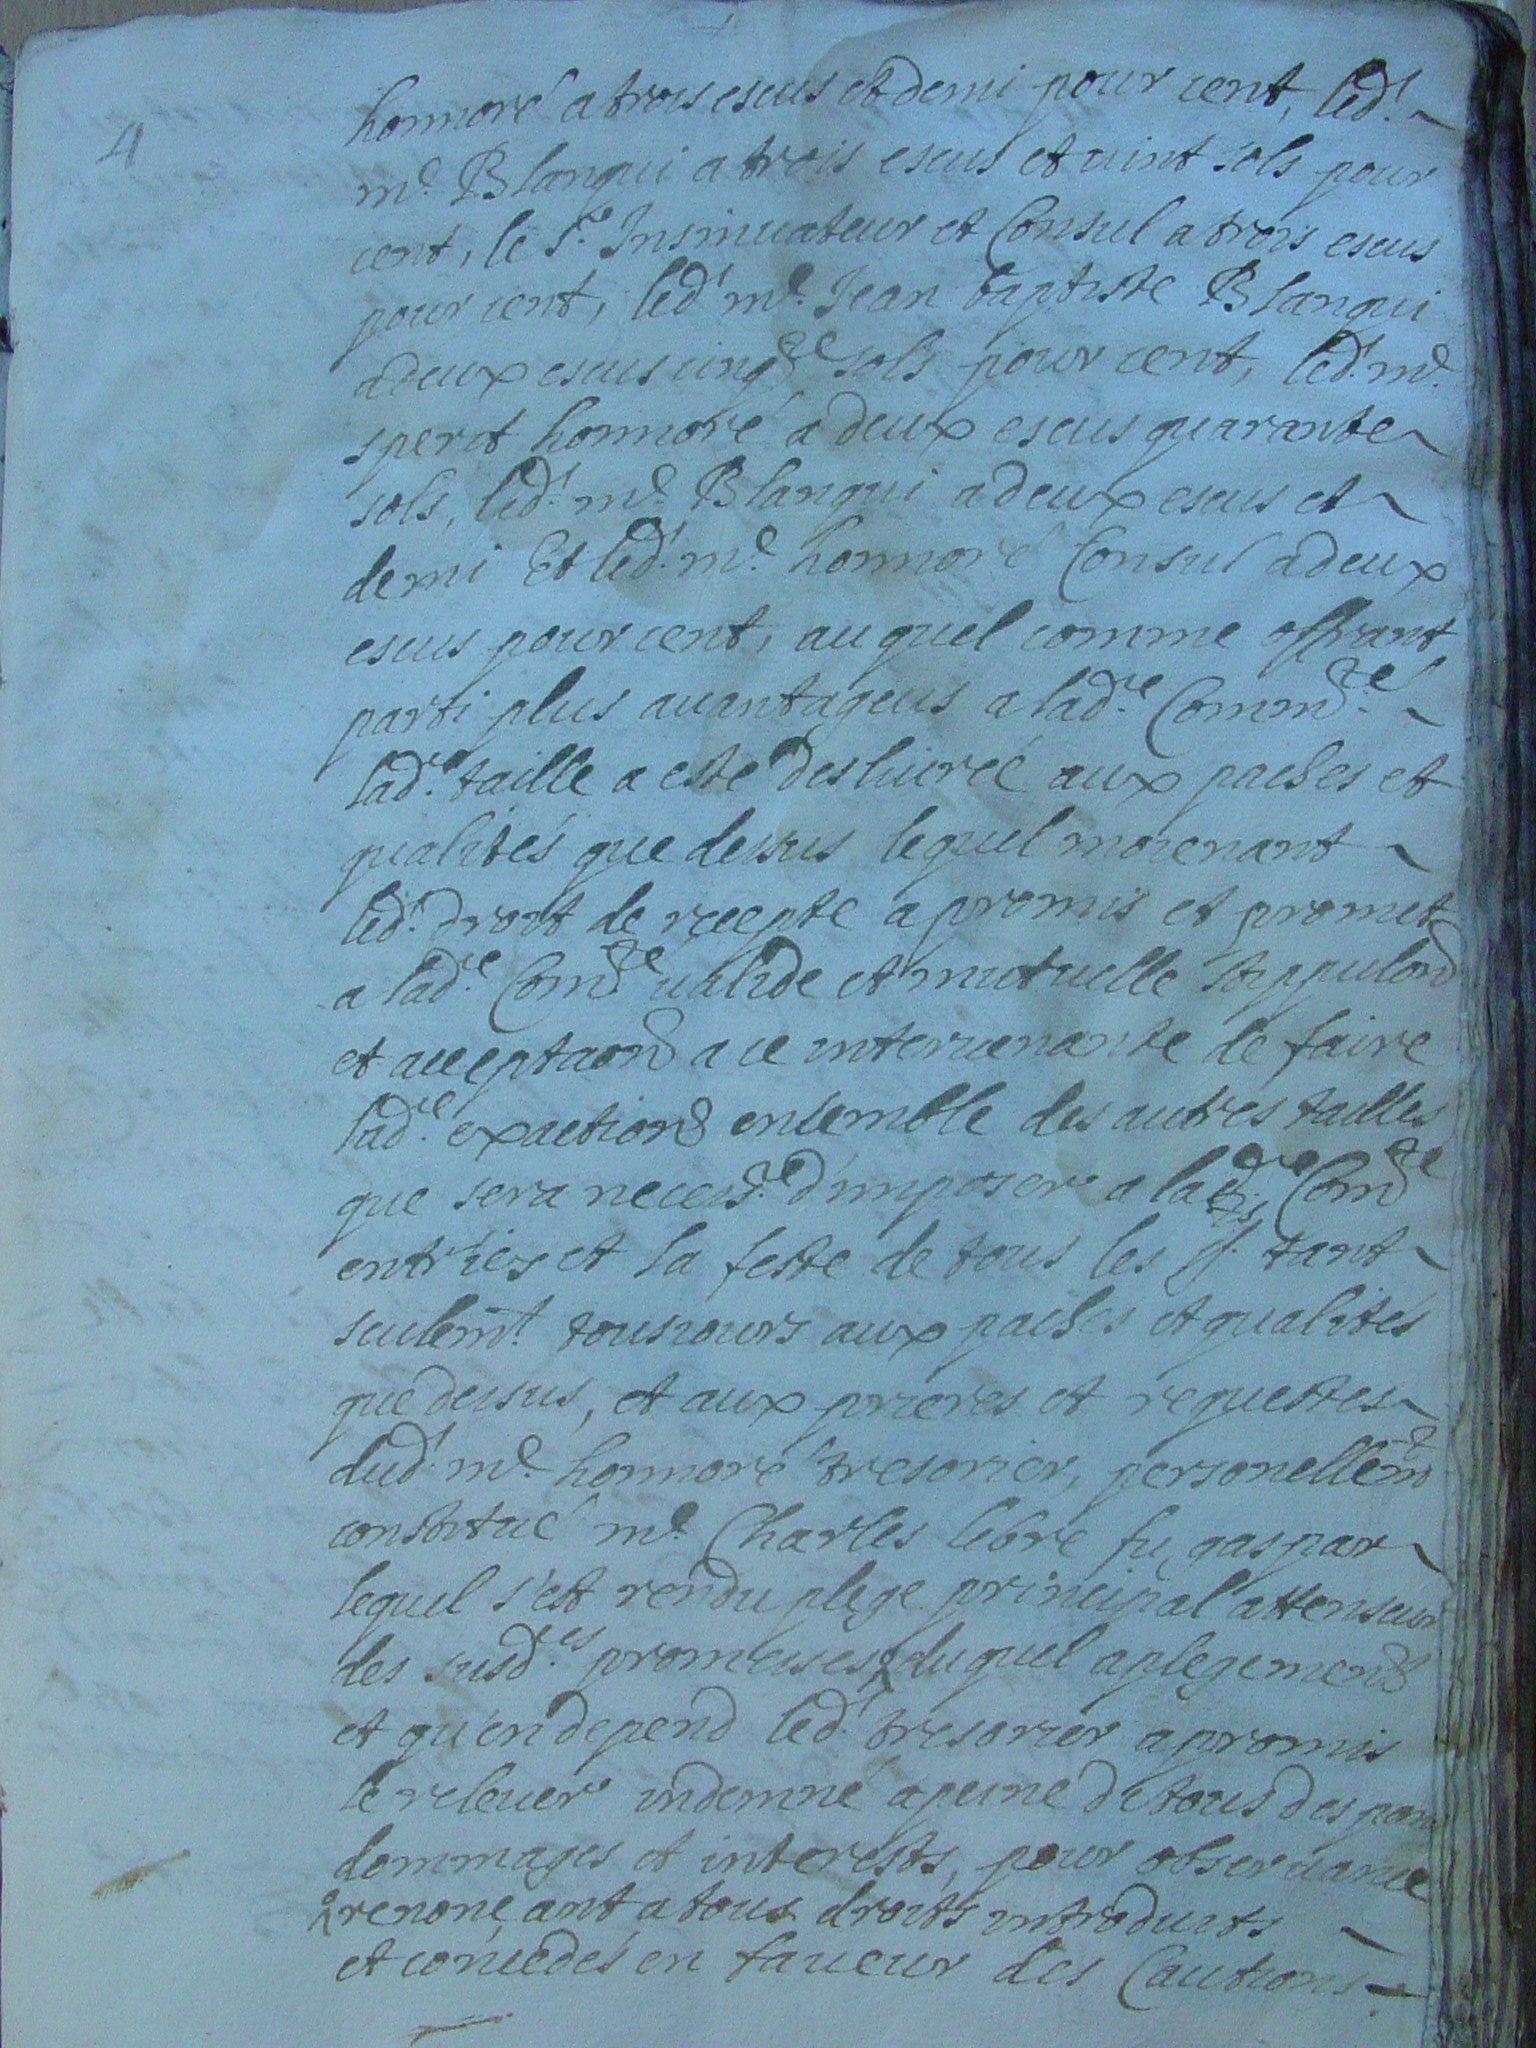 4
honnoré a trois escus et demi pour cent, led.t
m.e Blanqui a trois escus et vint sols pour
cent, le S.r Insinuateur et Consul a trois escus
pour cent, led.t m.e Jean baptiste Blanqui
a deux escus cinq.te sols pour cent, led.t m.e
sperit honnoré a deux escus quarante
sols, led.t m.e Blanqui a deux escus et
demi Et led.t m.e honnoré Consul a deux
escus pour cent, auquel comme offrant
parti plus auantageus a lad.te Comm.té
lad.te taille a esté desliurée aux paches et
qualités que dessus lequel moienant
led.t droit de recepte a promis et promet
a lad.te Com.té ualide et mutuelle stippulon
et acceptaon a ce interuenante de faire
lad.te exaction ensemble des autres tailles
que sera necess.re d'imposer a lad.te Com.té
entr'iey et la feste de tous les S.ts tant
seulem.t tousiours aux paches et qualités
que dessus, et aux prieres et requestes
dud.t m.e honnoré tresorier, personellem.t
constitué m.e Charles libre fu gaspar
lequel s'est rendu plege principal attenseur
des susd.es promesses, duquel aplegement
et qu'en depend led.t tresorier a promis
le releuer indemne a peine de tous despans
dommages et interests, pour obseruance
renonçant a tous droits introduits
et concedés en faueur des Cautions